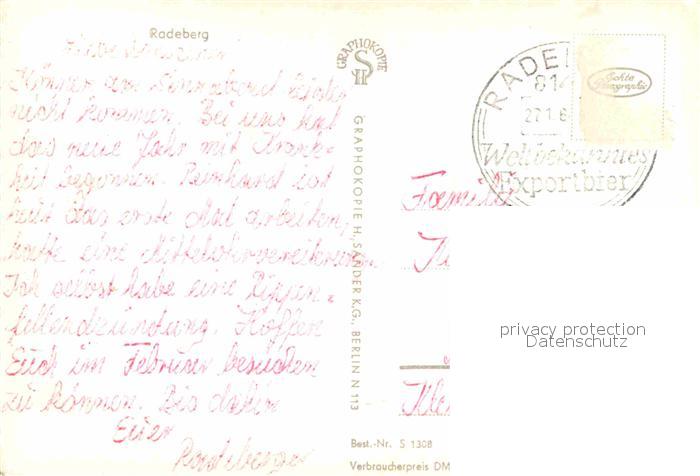 Radeberg
Können am Sonnabend leider
nicht kommen. Bei uns hat
das neue Jahr mit Krank-
heit begonnen. Reinhard ist
heut das erste Mal arbeiten,
hatte eine Mittelohrvereiterung.
Ich selbst habe eine Rippen-
fellendzündung. Hoffen
Euch im Februar besuchen
zu können. Bis dahin
Euer
Radeberger
GRAPHOKOPIE
SH
GRAPHOKOPIE H. SANDER K.G., BERLIN N 113
RADE
814
27.1.6
Weltbekanntes
Exportbier
Echte
Photographie
Familie
Kl
Best.-Nr. S 1308
Verbraucherpreis DM
privacy protection
Datenschutz